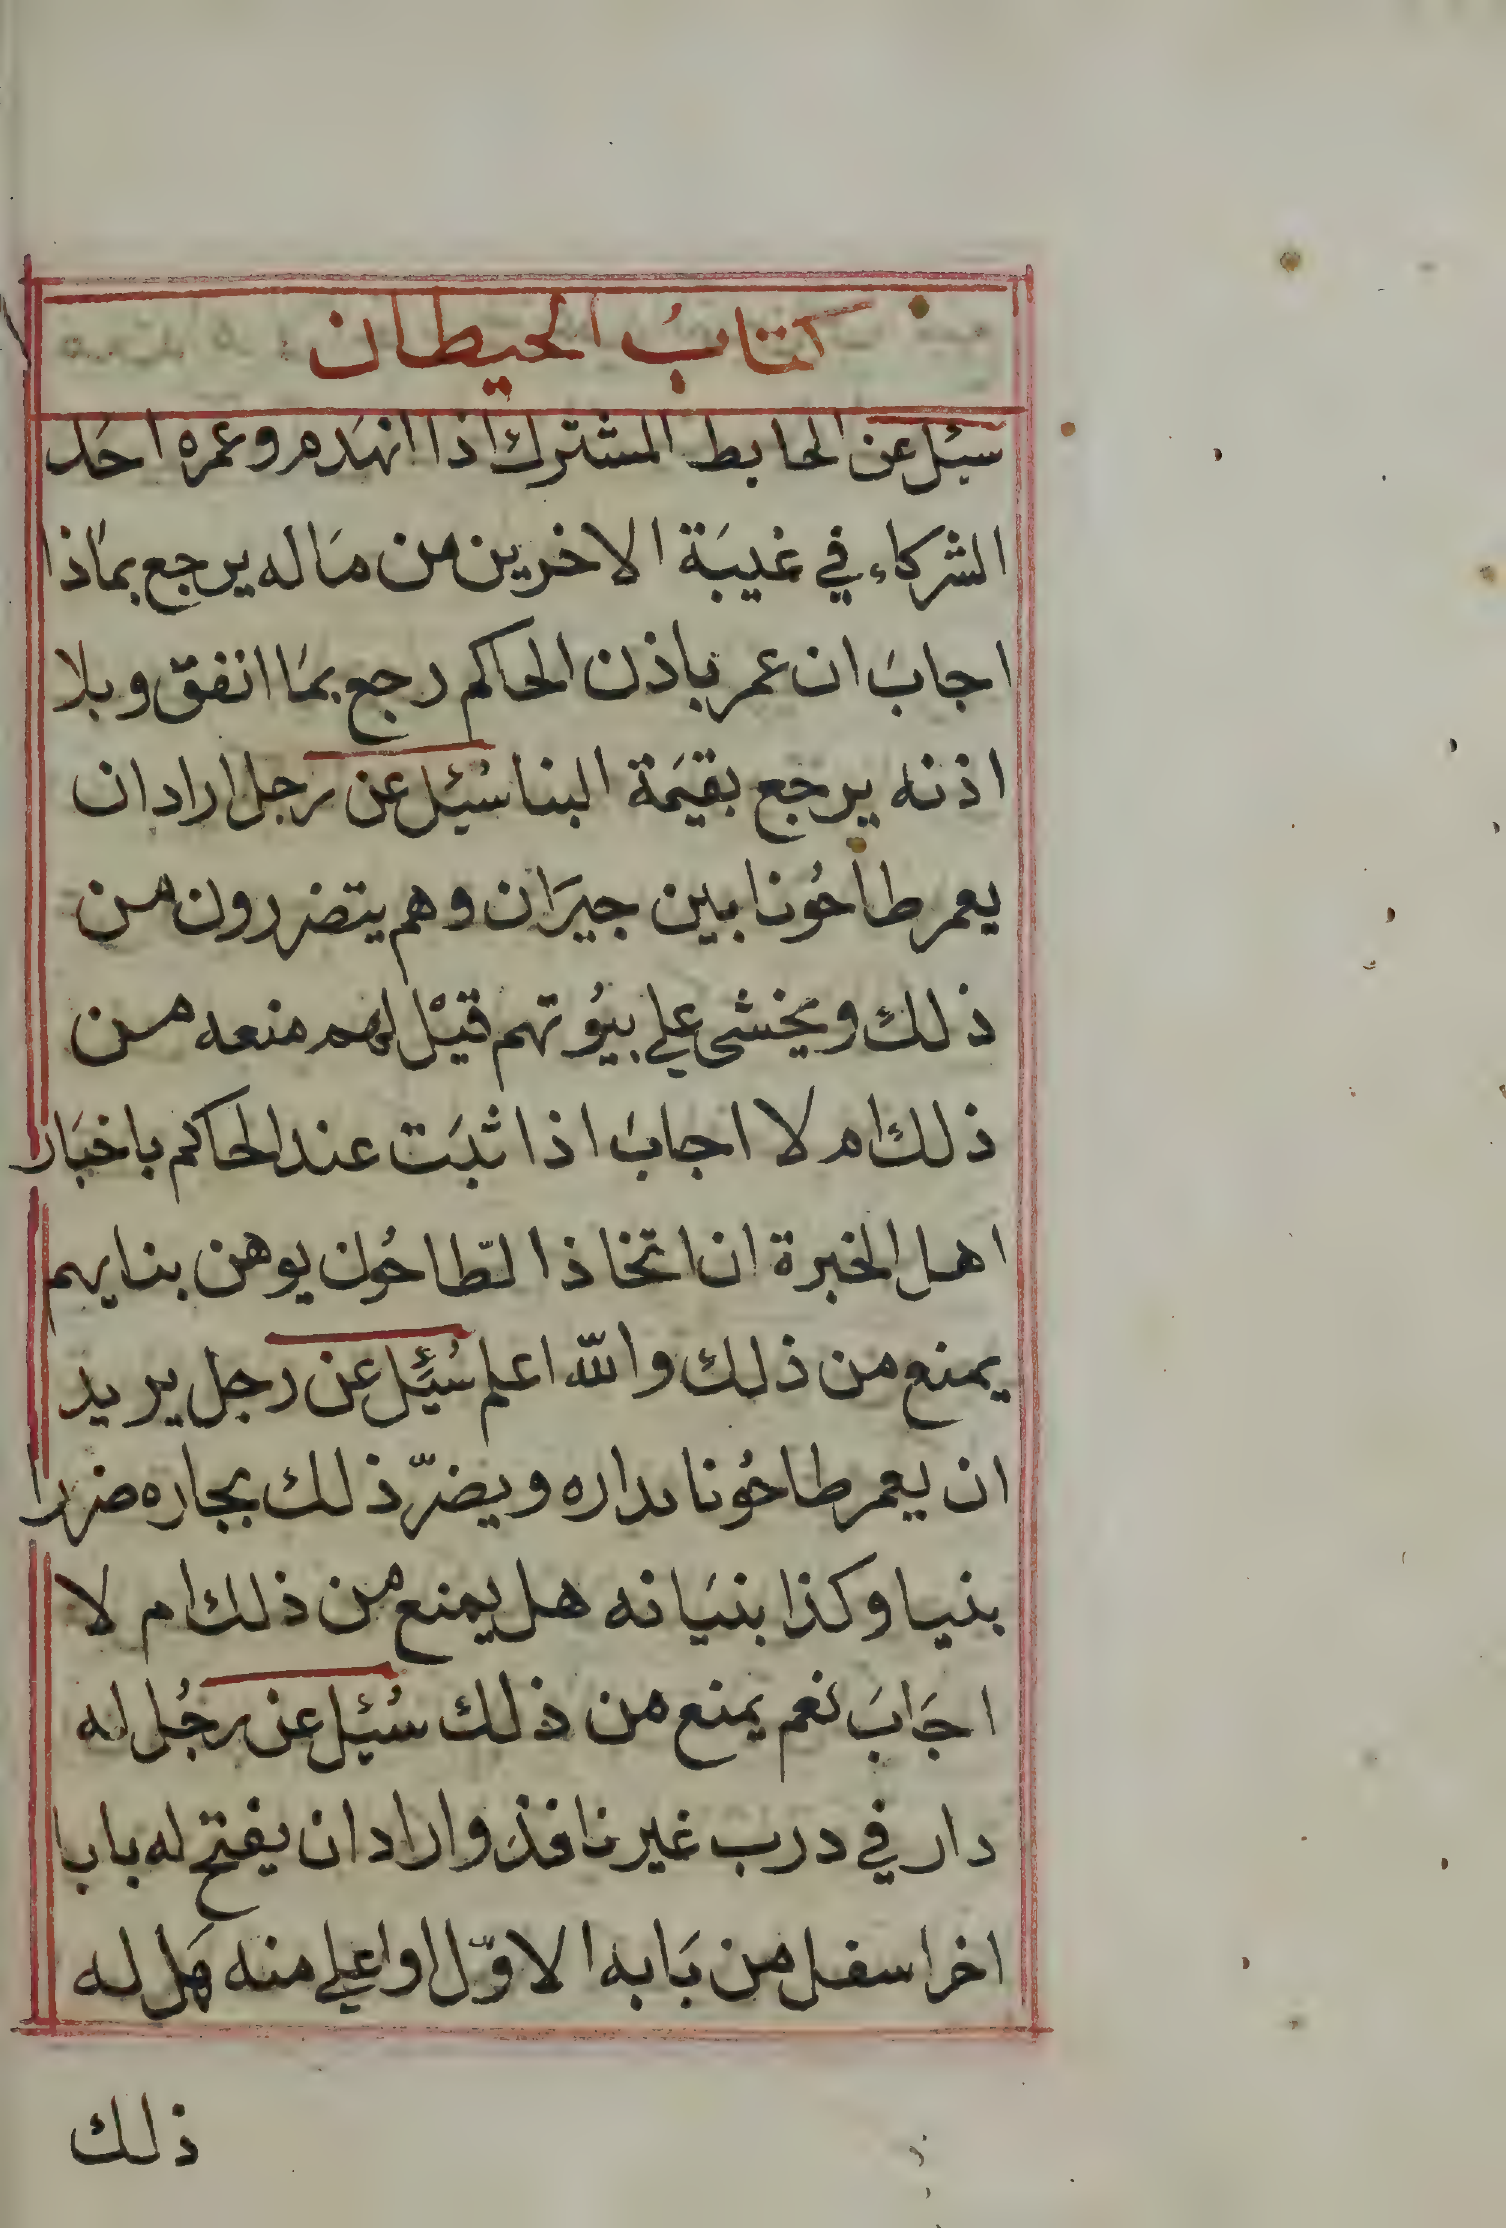 كتابُ الحيطان
سيئل عن الحايط المشترك اذا انهدم وعمره احَد
الشركاء في غيبَة الاخرين من مَاله يرجع بماذا
اجابَ ان عمر باذن الحاكم رجع بمَا انفق وبلا
اذنه يرجع بقيمَة البنا سُيئل عن رجل اراد ان
يعمر طاحُونا بين جيرَان وهم يتضررون من
ذلك ويخشى علي بيُوتهم قيْل لهم منعه من
ذلك ام لا اجابَ اذا ثبَت عند الحاكم باخبَار
اهل الخبرة ان اتخاذ الطّاحُون يوهن بنايهم
يمنع من ذلك والله اعلم سُيئَل عن رجل يريد
ان يعمر طاحُونا بداره ويضرّ ذلك بجاره ضررا
بنيا وكذا بنيَانه هل يمنع من ذلك ام لا
اجَابَ نعم يمنع من ذلك سُيئل عن رجُل له
دار في درب غير نافذ واراد ان يفتح له بابا
اخر اسفل من بَابه الاوّل او اعلي منه هَل له
ذلك